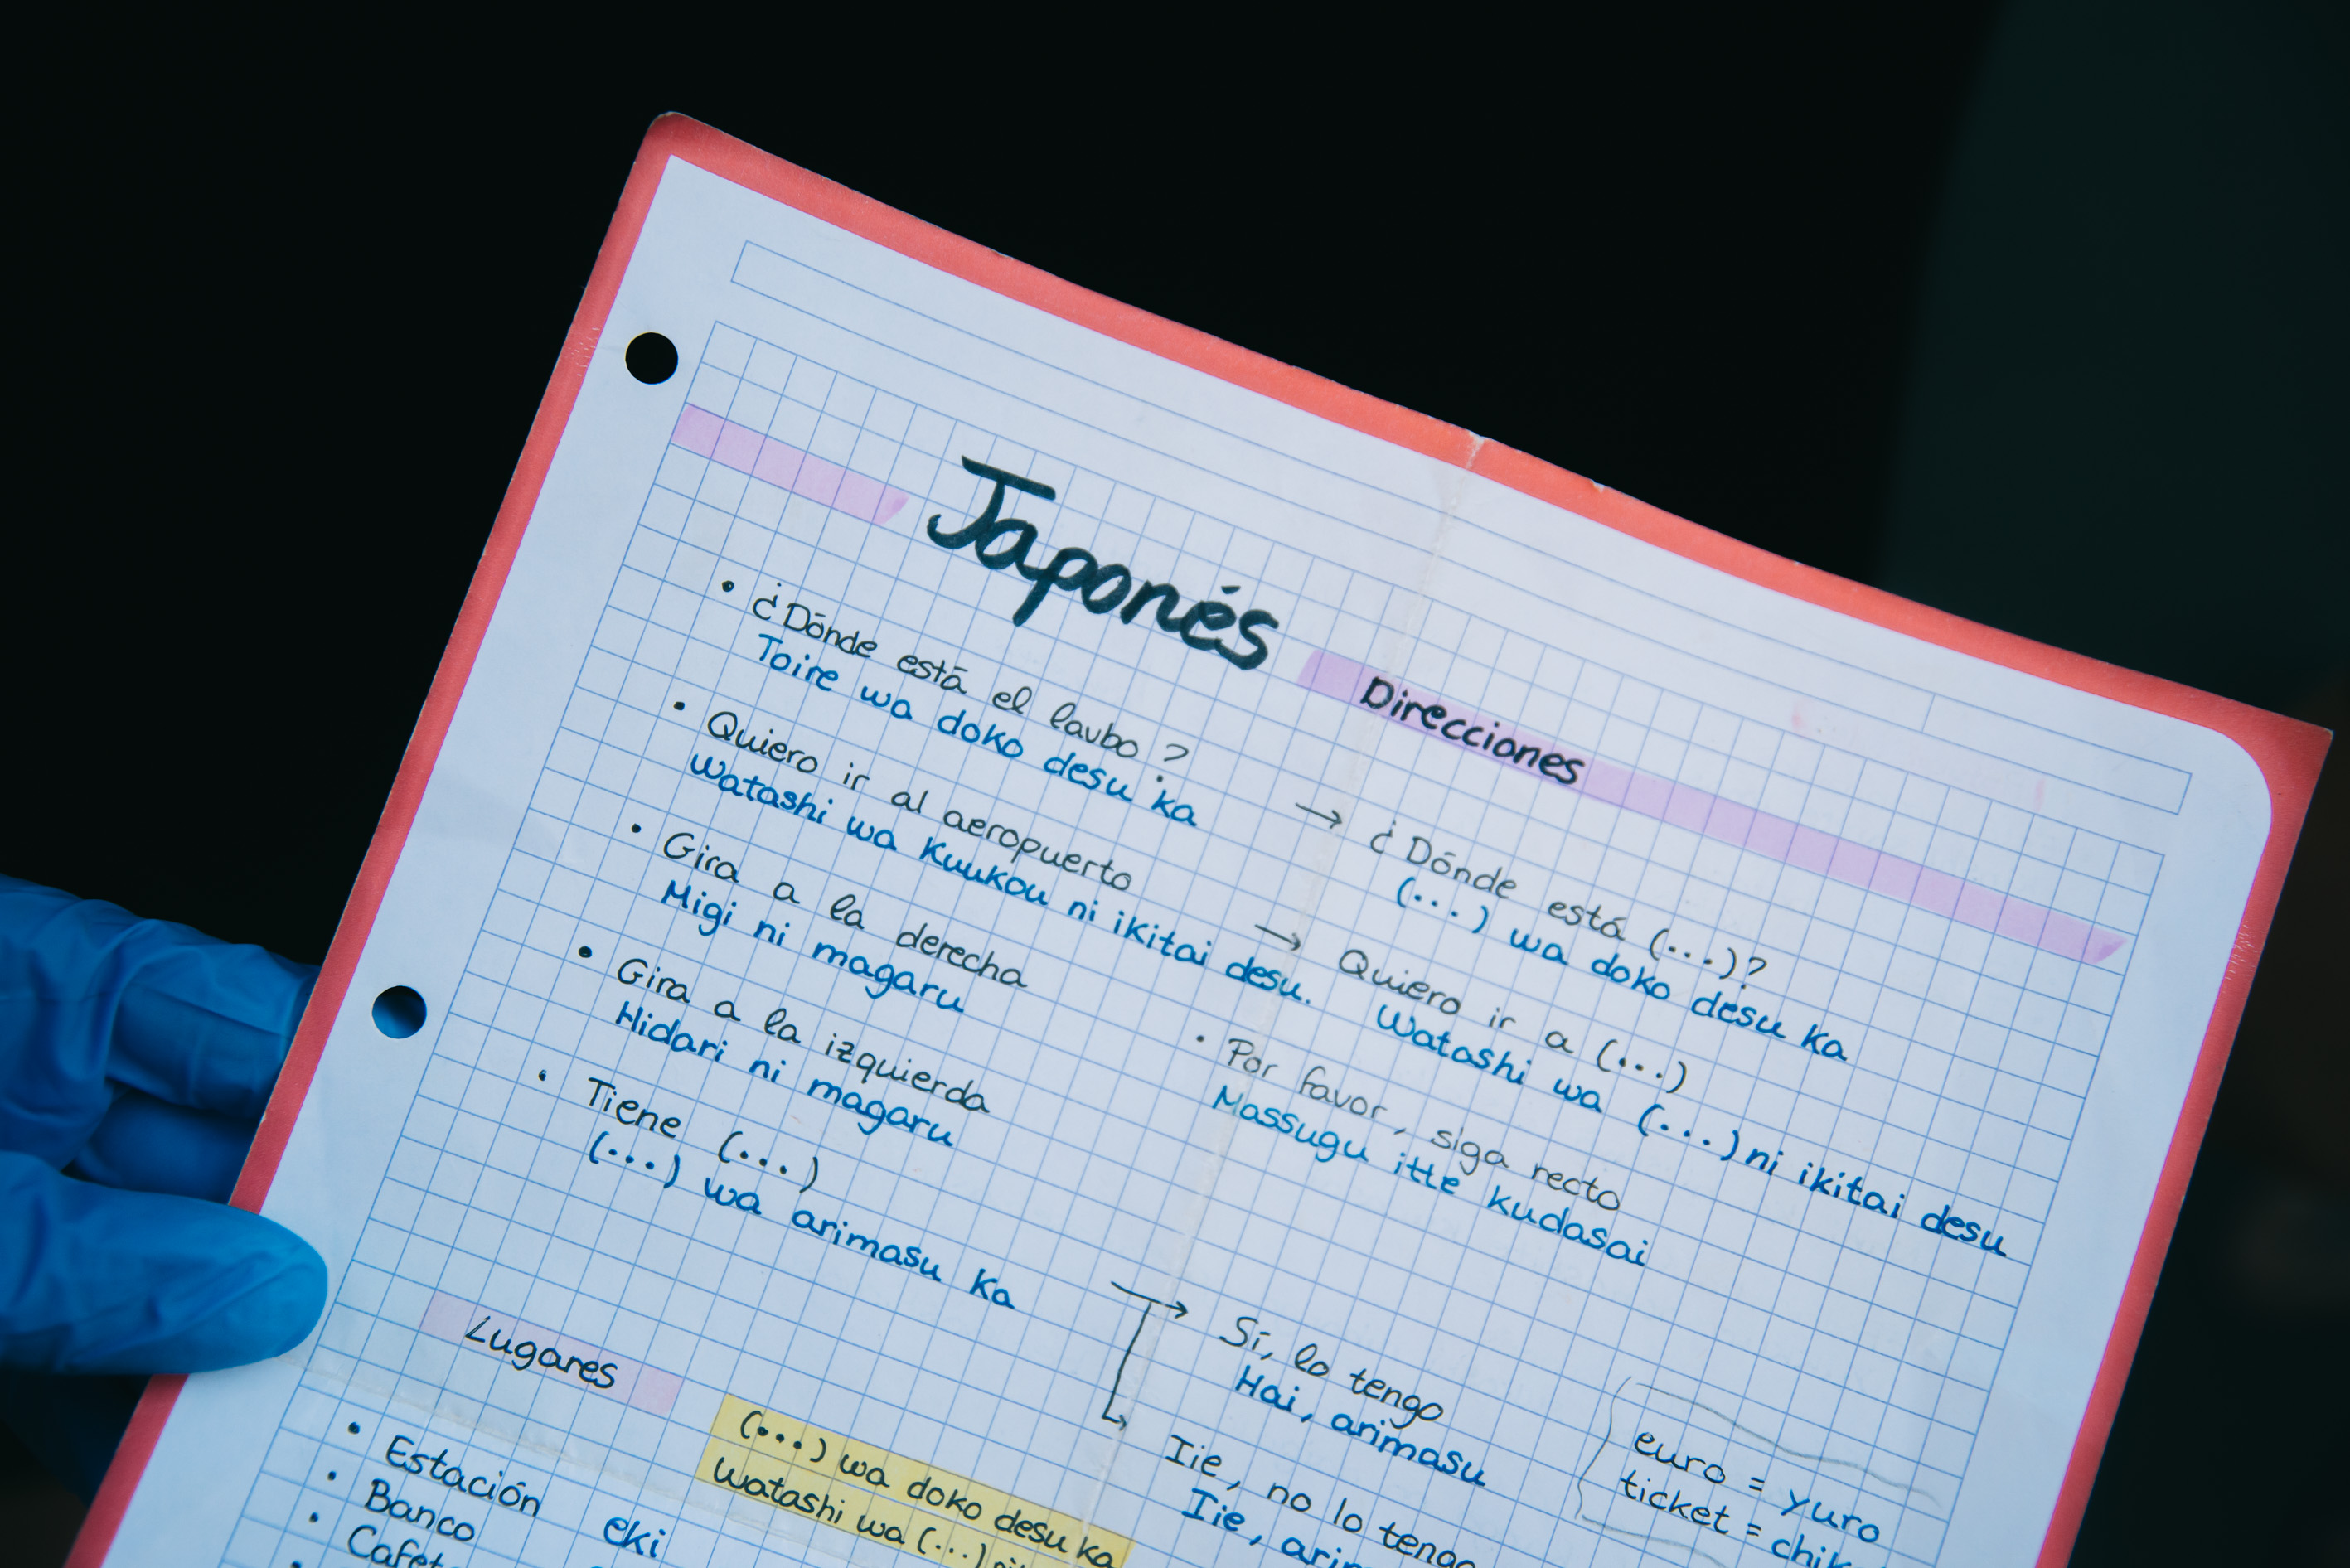 Japonés
Direcciones
• ¿Dónde está el lavbo?
Toire wa doko desu ka
→ ¿Dónde está (...)?
(...) wa doko desu ka
• Quiero ir al aeropuerto
watashi wa Kuukou ni ikitai desu.
→ Quiero ir a (...)
Watashi wa (...) ni ikitai desu
• Gira a la derecha
Migi ni magaru
• Por favor, siga recto
Massugu itte kudasai
• Gira a la izquierda
Hidari ni magaru
• Tiene (...)
(...) wa arimasu ka
→ Sí, lo tengo
Hai, arimasu
Iie, no lo tengo
Iie,
euro = yuro
ticket =
Lugares
(...) wa doko desu ka
watashi wa (...)
• Estación eki
• Banco